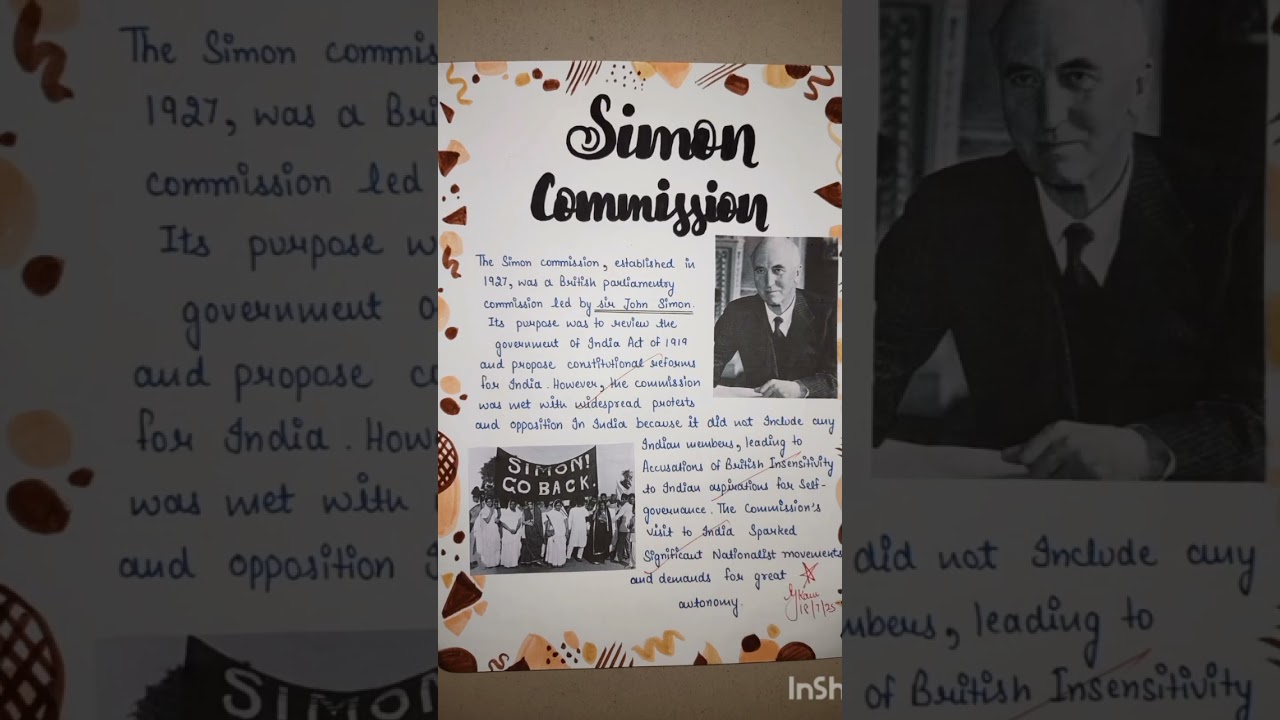 Simon
Commission
The Simon commission, established in
1927, was a British parliamentry
commission led by sir John Simon.
Its purpose was to review the
government of India Act of 1919
and propose constitutional reforms
for India. However, the commission
was met with widespread protests
and opposition In India because it did not Include any
Indian members, leading to
Accusations of British Insensitivity
to Indian aspirations for Self-
governance. The Commission's
visit to India Sparked
Significant Nationalist movements
and demands for great
autonomy.
SIMON!
GO BACK.
18/7/25
InSh
The Simon commis
1927, was a Bri
commission led
Its purpose w
government o
and propose co
for India. How
was met with
and opposition I
SIMON!
did not Include any
mbers, leading to
of British Insensitivity